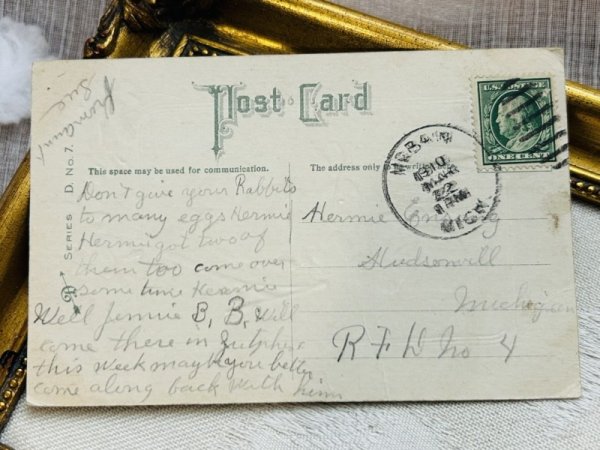 from aunt
Sue
Post Card
U.S. POSTAGE
ONE CENT
This space may be used for communication.
The address only
SERIES D. No. 7.
1910
MAR
22
MICH
Don't give your Rabbits
to many eggs Hermie
Hermie got two of
them too come over
some time Hermie
Well Jennie B, B, Will
come there in
this week maybe you better
come along back with him
Hermie
Hudsonvill
Michigan
R F D No 4